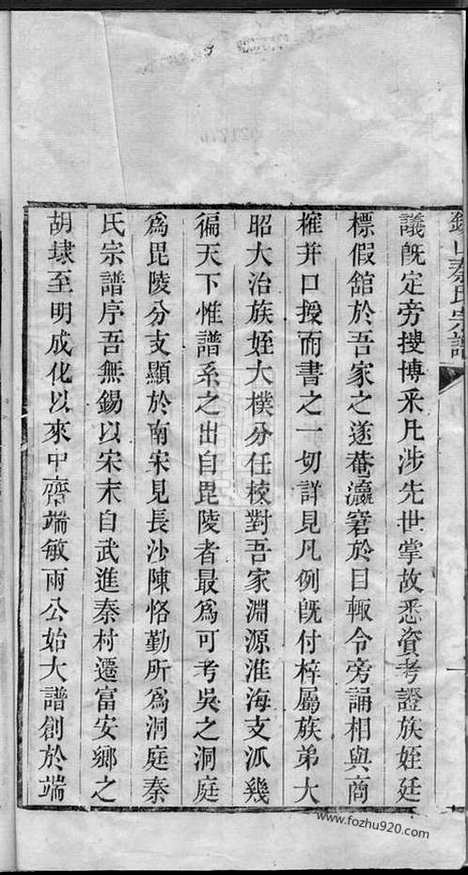 錫山秦氏宗譜
議旣定旁搜博采凡涉先世掌故悉資考證族姪廷
標假舘於吾家之遂菴瀛窘於目輙令旁誦相與商
搉幷口授而書之一切詳見凡例旣付梓屬族弟大
昭大治族姪大樸分任校對吾家淵源淮海支派幾
徧天下惟譜系之出自毘陵者最爲可考吳之洞庭
爲毘陵分支顯於南宋見長沙陳恪勤所爲洞庭秦
氏宗譜序吾無錫以宋末自武進秦村遷富安鄉之
胡埭至明成化以來中齋端敏兩公始大譜創於端
www.fozhu920.com